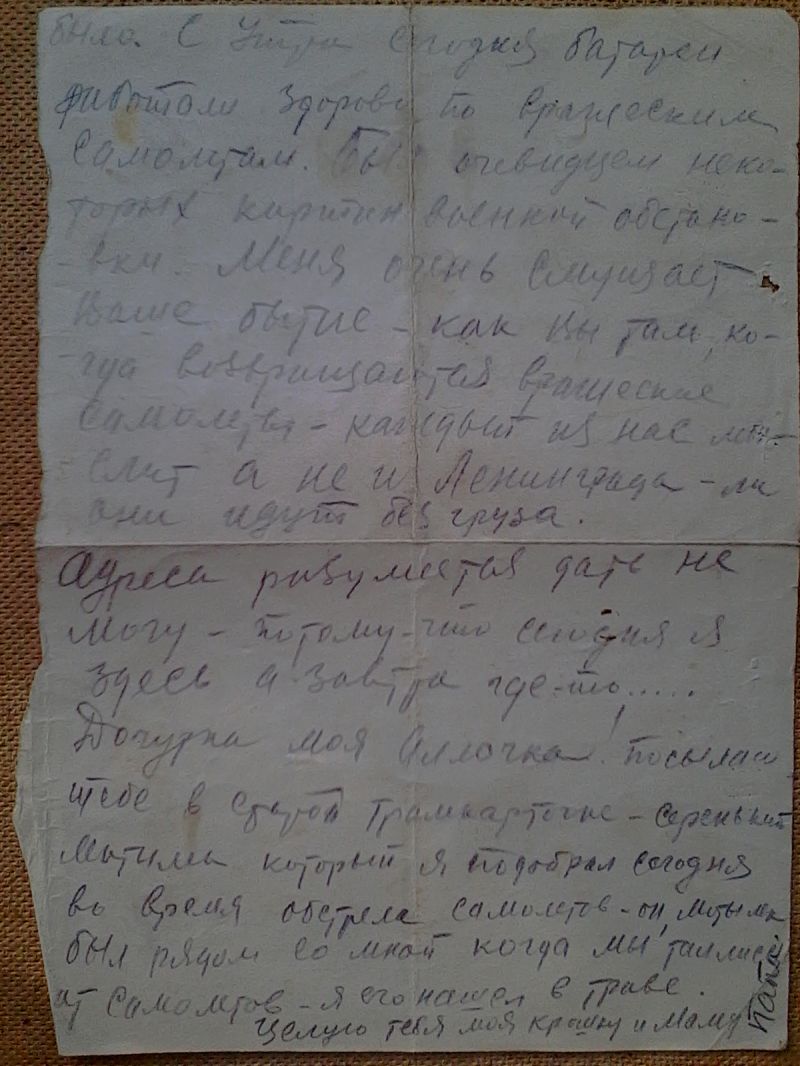 было. С Утра сегодня батареи
работали здорово по вражеским
самолетам. Был очевидцем неко-
торых картин военной обстано-
-вки. Меня очень смущает
Ваше бытие - как Вы там, ко-
-гда возвращаются вражеские
самолеты - каждый из нас мы-
слит а не и Ленинграда - ли
они идут без груза.
Адреса разумеется дать не
могу - потому-что сегодня я
здесь а завтра где-то.....
Дочурка моя Аллочка! посылаю
тебе в старой трамкарточке - серенький
мотылек который я подобрал сегодня
во время обстрела самолетов - он, мотылек
был рядом со мной когда мы таились
от самолетов - я его нашел в траве.
Целую тебя моя крошку и Маму
Папа